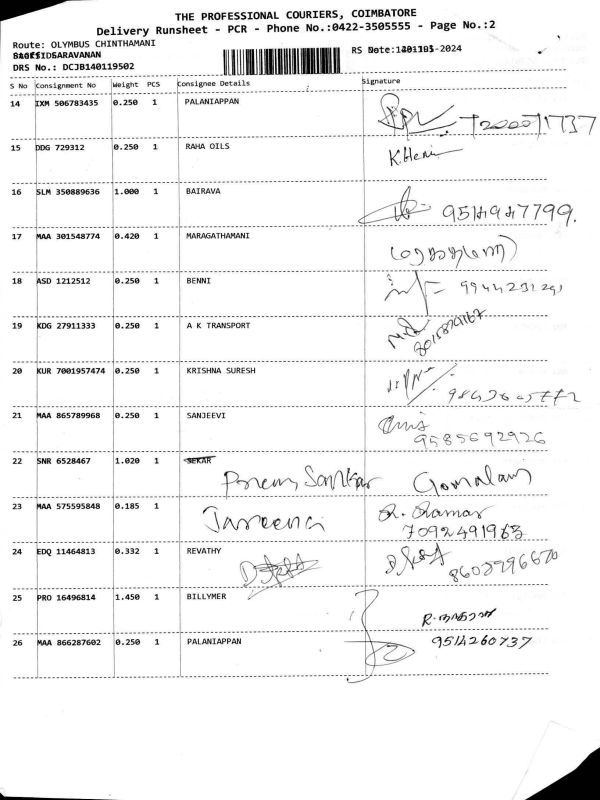 THE PROFESSIONAL COURIERS, COIMBATORE
Delivery Runsheet - PCR - Phone No.:0422-3505555 - Page No.:2
Route: OLYMBUS CHINTHAMANI
SARAVANAN
RS Date: -2024
DRS No.: DCJB140119502
S No Consignment No Weight PCS Consignee Details Signature
14 IXM 506783435 0.250 1 PALANIAPPAN
15 DDG 729312 0.250 1 RAHA OILS K.Heni
16 SLM 350889636 1.000 1 BAIRAVA
17 MAA 301548774 0.420 1 MARAGATHAMANI
18 ASD 1212512 0.250 1 BENNI
19 KDG 27911333 0.250 1 A K TRANSPORT
20 KUR 7001957474 0.250 1 KRISHNA SURESH
21 MAA 865789968 0.250 1 SANJEEVI
9585692926
22 SNR 6528467 1.020 1 SEKAR
Prem Sankar Gomalam
23 MAA 575595848 0.185 1 Jasreena R. Ramar
7092491963
24 EDQ 11464813 0.332 1 REVATHY
25 PRO 16496814 1.450 1 BILLYMER
26 MAA 866287602 0.250 1 PALANIAPPAN 9514260737